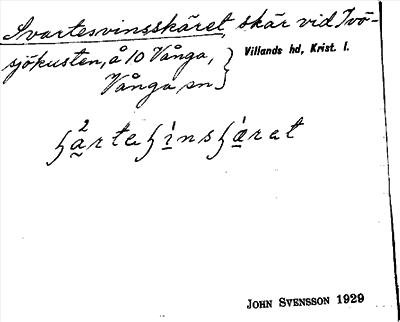 Svartesvinsskäret, skär vid Ivö-
sjökusten, å 10 Vånga,
Vånga sn
Villands hd, Krist. l.
John Svensson 1929